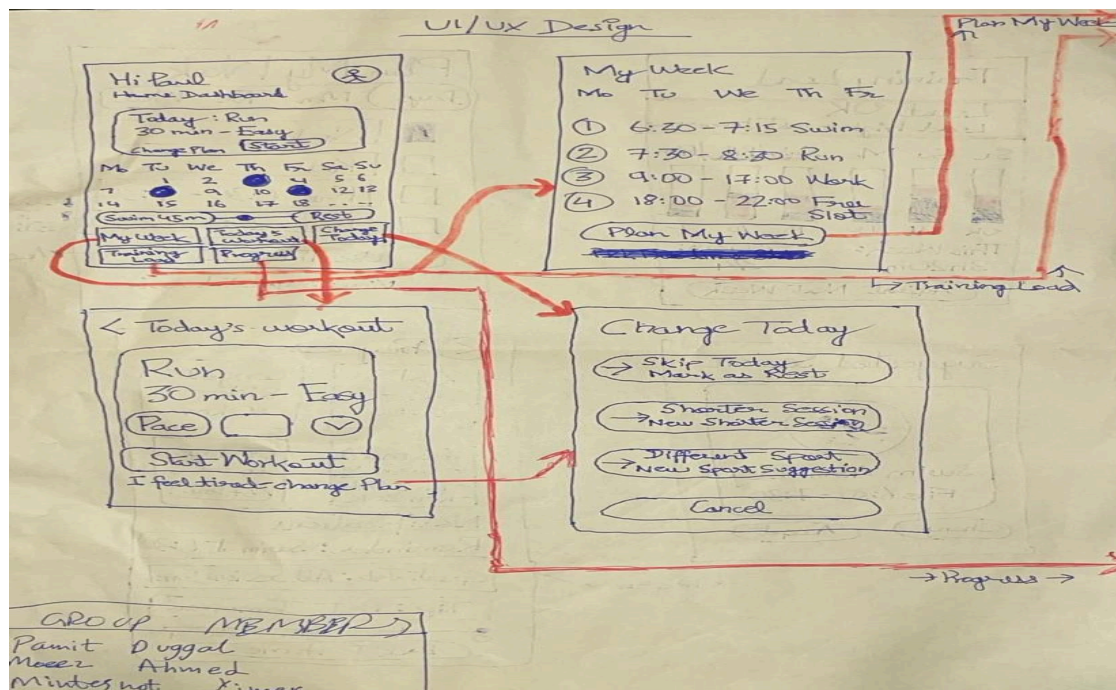 UI/UX Design
Plan My Week
Hi Paul
Home Dashboard
Today : Run
30 min - Easy
Change Plan Start
Mo Tu We Th Fr Sa Su
1 2 4 5 6
7 9 10 12 13
14 15 16 17 18
Swim 45m Rest
My Week Today's Workout Change Today
Training Load Progress
My Week
Mo Tu We Th Fr
1 6:30 - 7:15 Swim
2 7:30 - 8:30 Run
3 9:00 - 17:00 Work
4 18:00 - 22:00 Free
Slot
Plan My Week
↳ Training Load
< Today's workout
Run
30 min - Easy
Pace
Start Workout
I feel tired - change Plan
Change Today
→ Skip Today
Mark as Rest
Shorter Session
→ New Shorter Session
Different Sport
→ New Sport Suggestion
Cancel
→ Progress →
GROUP MEMBERS
Pamit Duggal
Moeez Ahmed